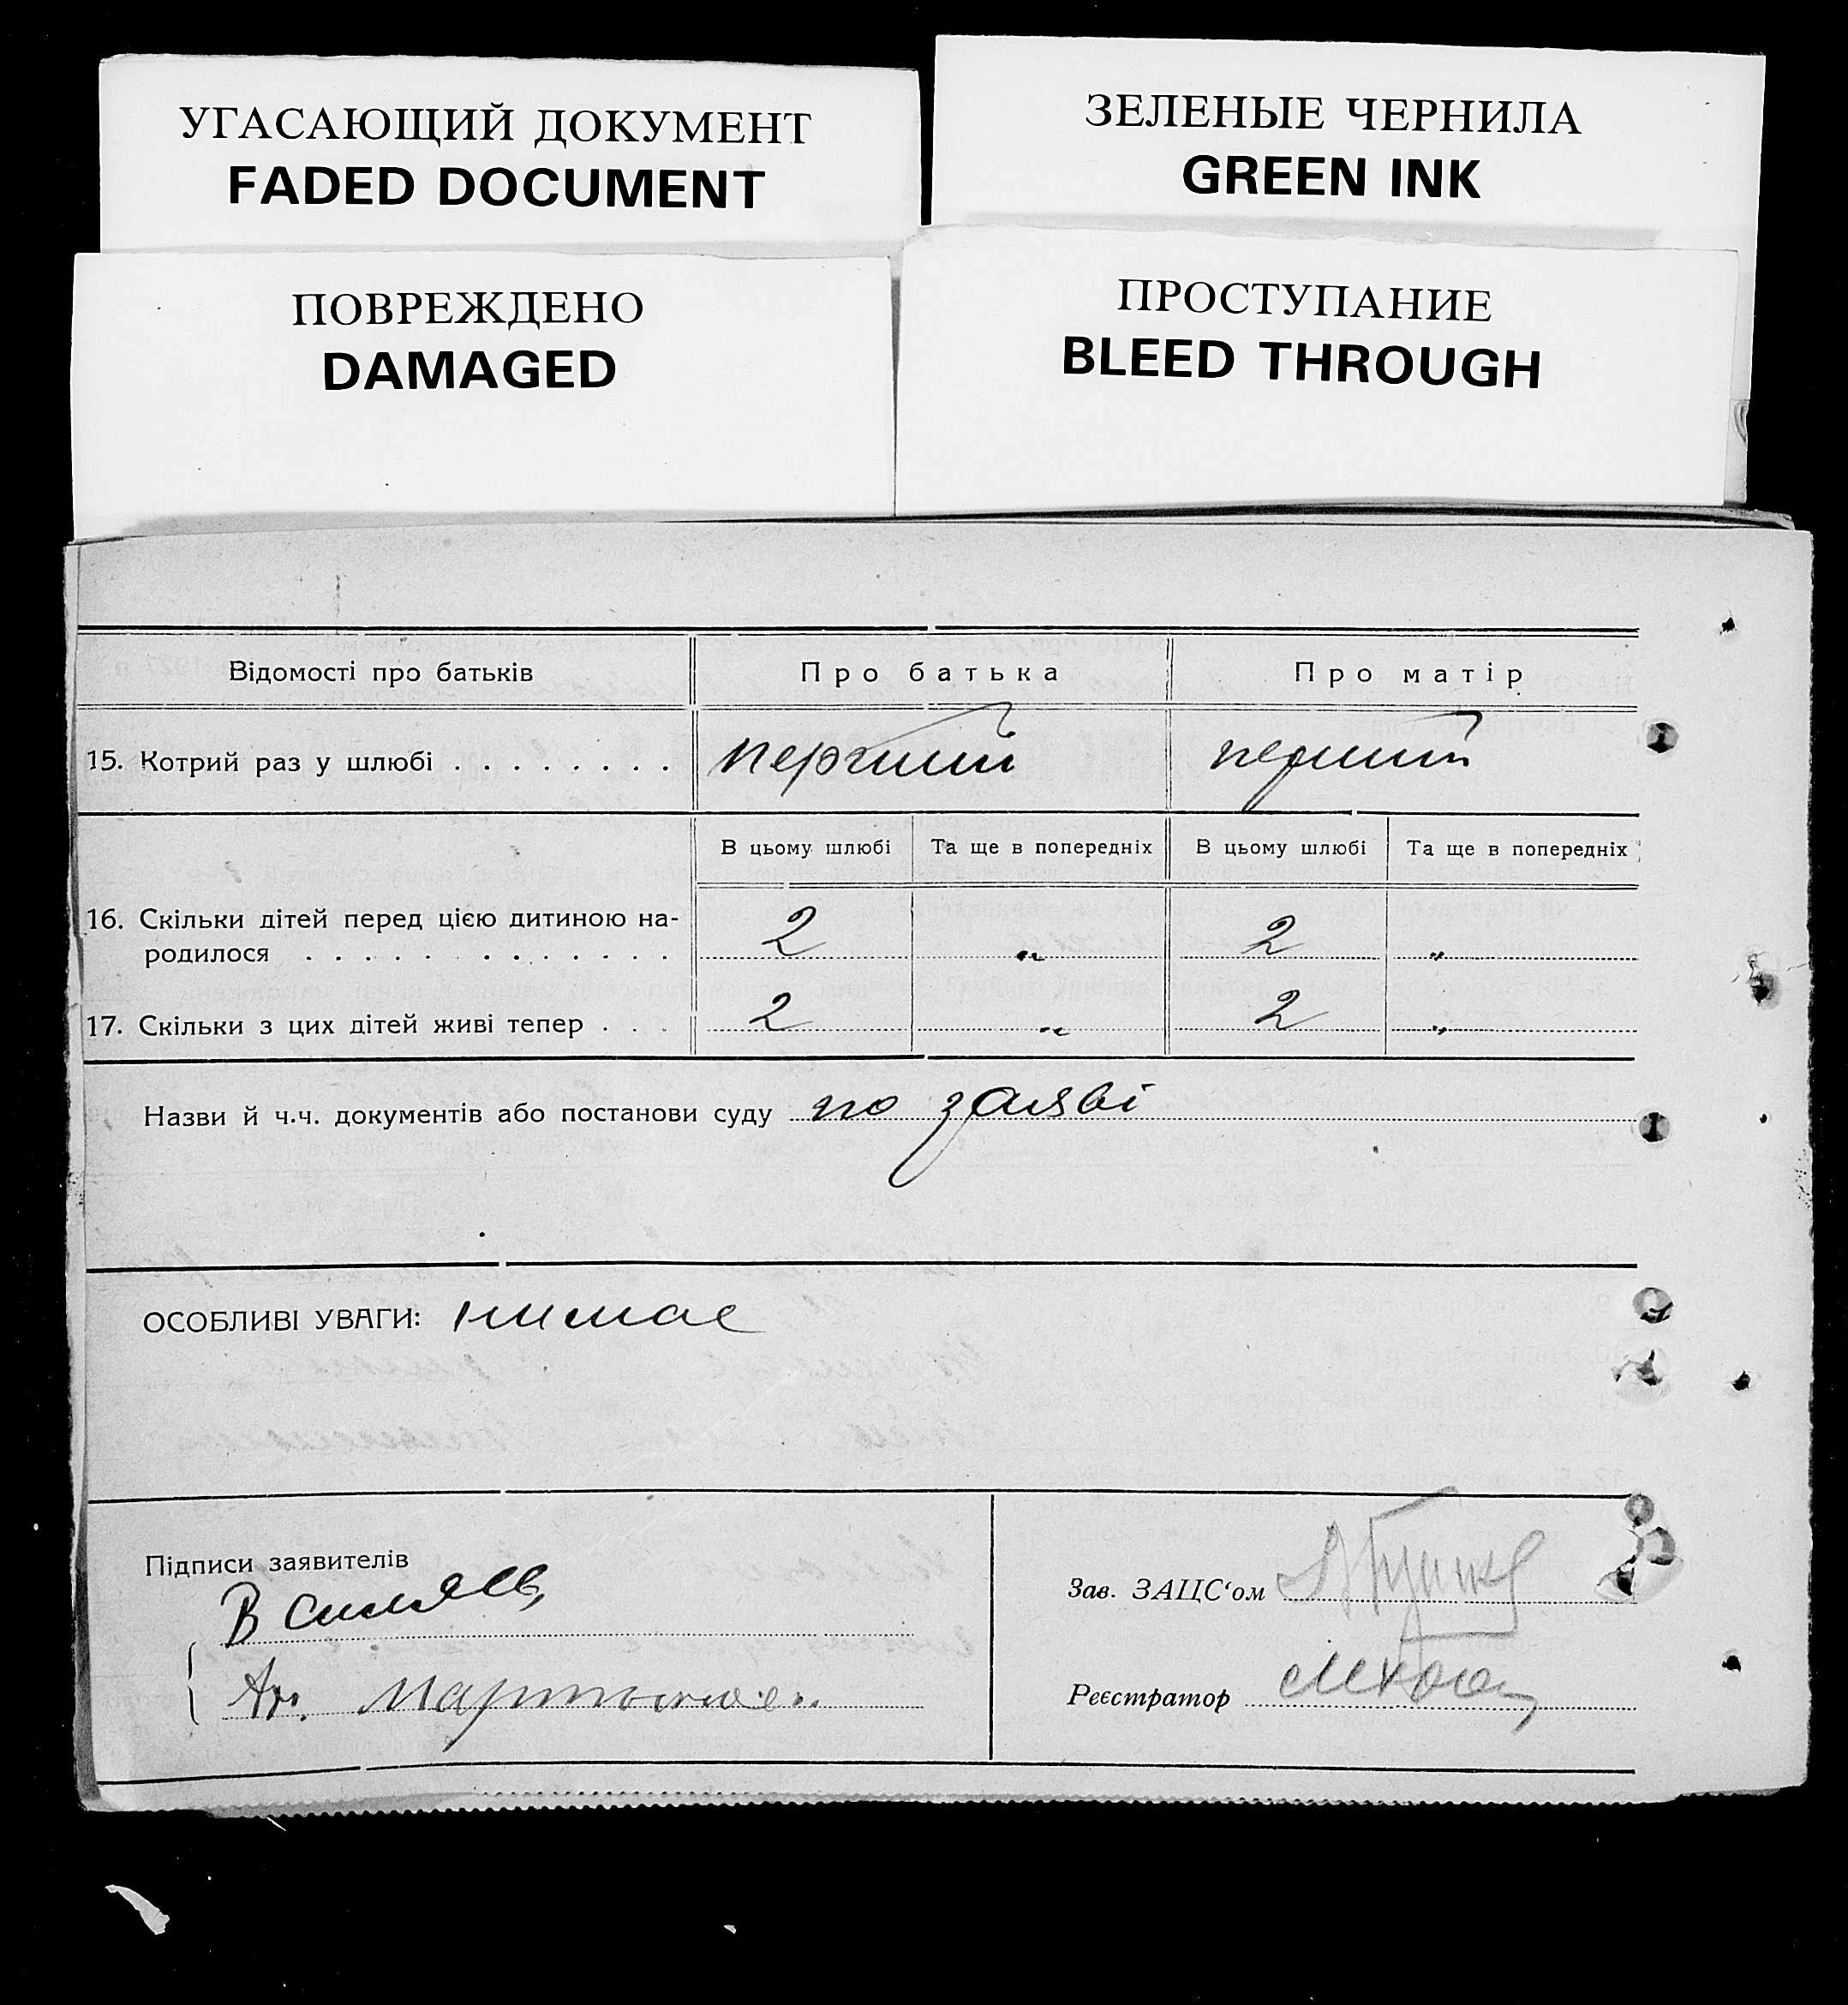 УГАСАЮЩИЙ ДОКУМЕНТ
FADED DOCUMENT
ЗЕЛЕНЫЕ ЧЕРНИЛА
GREEN INK
ПОВРЕЖДЕНО
DAMAGED
ПРОСТУПАНИЕ
BLEED THROUGH
Відомості про батьків Про батька Про матір
15. Котрий раз у шлюбі . . . . . . . . перший перший
В цьому шлюбі Та ще в попередніх В цьому шлюбі Та ще в попередніх
16. Скільки дітей перед цією дитиною на-
родилося . . . . . . . . . . . . . 2 „ 2 „
17. Скільки з цих дітей живі тепер . . . 2 „ 2 „
Назви й ч.ч. документів або постанови суду по заяві
ОСОБЛИВІ УВАГИ: нимае
Підписи заявителів
Зав. ЗАЦС‘ом
Реєстратор